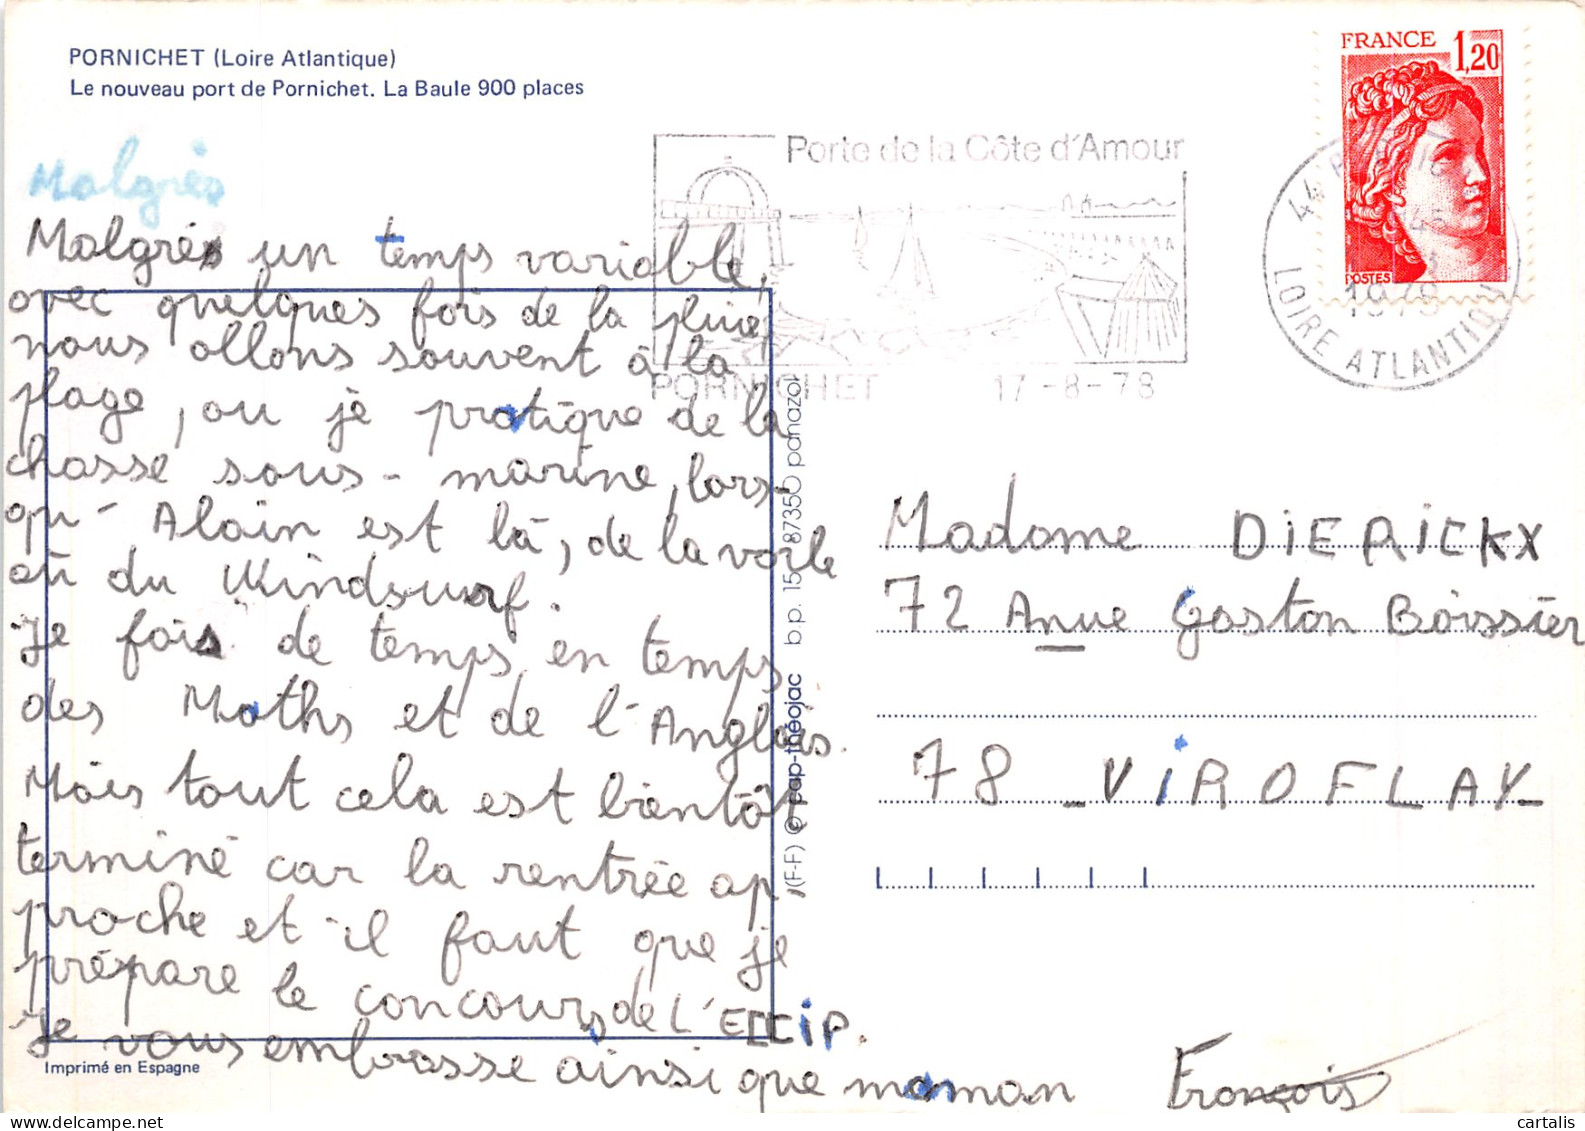 PORNICHET (Loire Atlantique)
Le nouveau port de Pornichet. La Baule 900 places
Malgrès
Malgré un temps variable,
avec quelques fois de la pluie,
nous allons souvent à la
plage, ou je pratique de la
chasse sous-marine, lors-
qu'Alain est là, de la voile
ou du Windsurf.
Je fais de temps en temps
des Maths et de l'Anglais.
Mais tout cela est bientôt
terminé car la rentrée ap
proche et il faut que je
prépare le concours de L'ECCIP.
Je vous embrasse ainsi que maman
François
Imprimé en Espagne
(F-F) © pap-théojac b.p. 15 87350 panazol
Porte de la Côte d'Amour
PORNICHET 17-8-78
FRANCE 1,20
POSTES
44
45
1978
LOIRE ATLANTIQUE
Madame DiERiCKX
72 Anue Gaston Boissier
78 - ViROFLAY -
cartalis